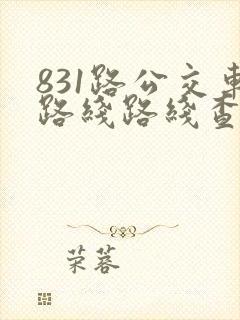 831路公交车
路綫路綫查
荣蓉